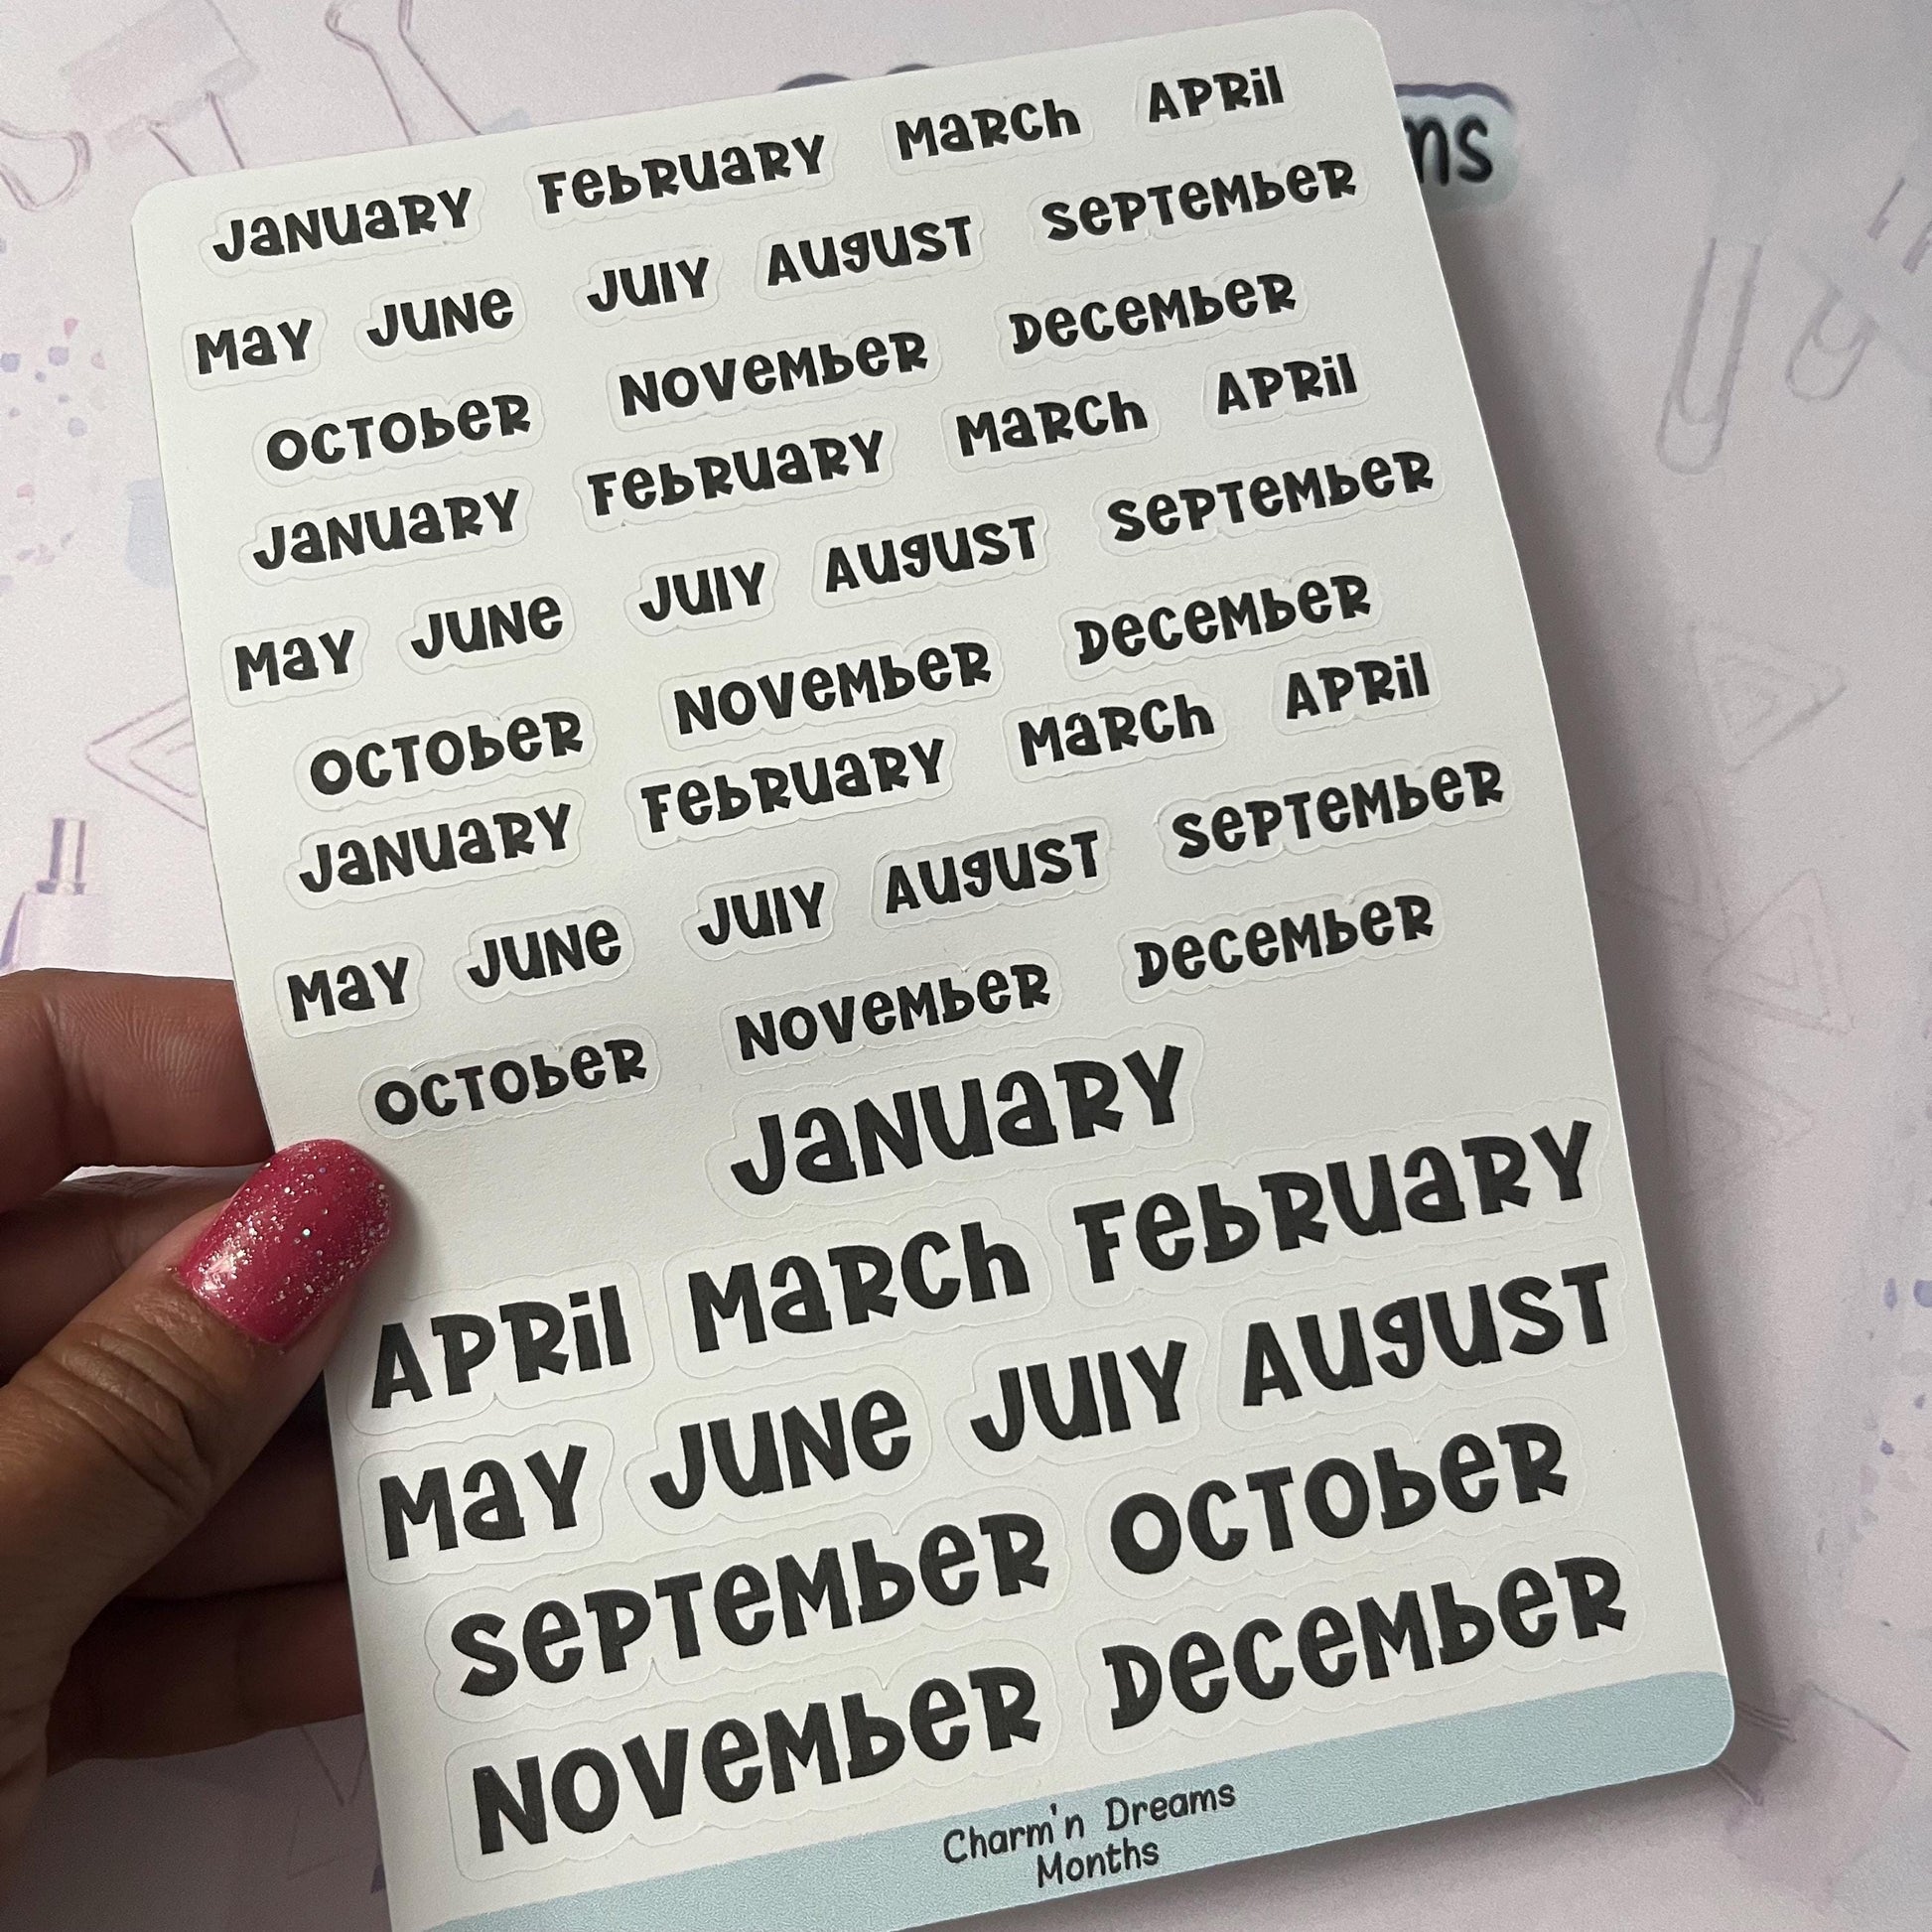 JANUARY FEBRUARY MARCH APRIL
MAY JUNE JULY AUGUST SEPTEMBER
OCTOBER NOVEMBER DECEMBER
JANUARY FEBRUARY MARCH APRIL
MAY JUNE JULY AUGUST SEPTEMBER
OCTOBER NOVEMBER DECEMBER
JANUARY FEBRUARY MARCH APRIL
MAY JUNE JULY AUGUST SEPTEMBER
OCTOBER NOVEMBER DECEMBER
JANUARY
APRIL MARCH FEBRUARY
MAY JUNE JULY AUGUST
SEPTEMBER OCTOBER
NOVEMBER DECEMBER
Charm'n Dreams
Months